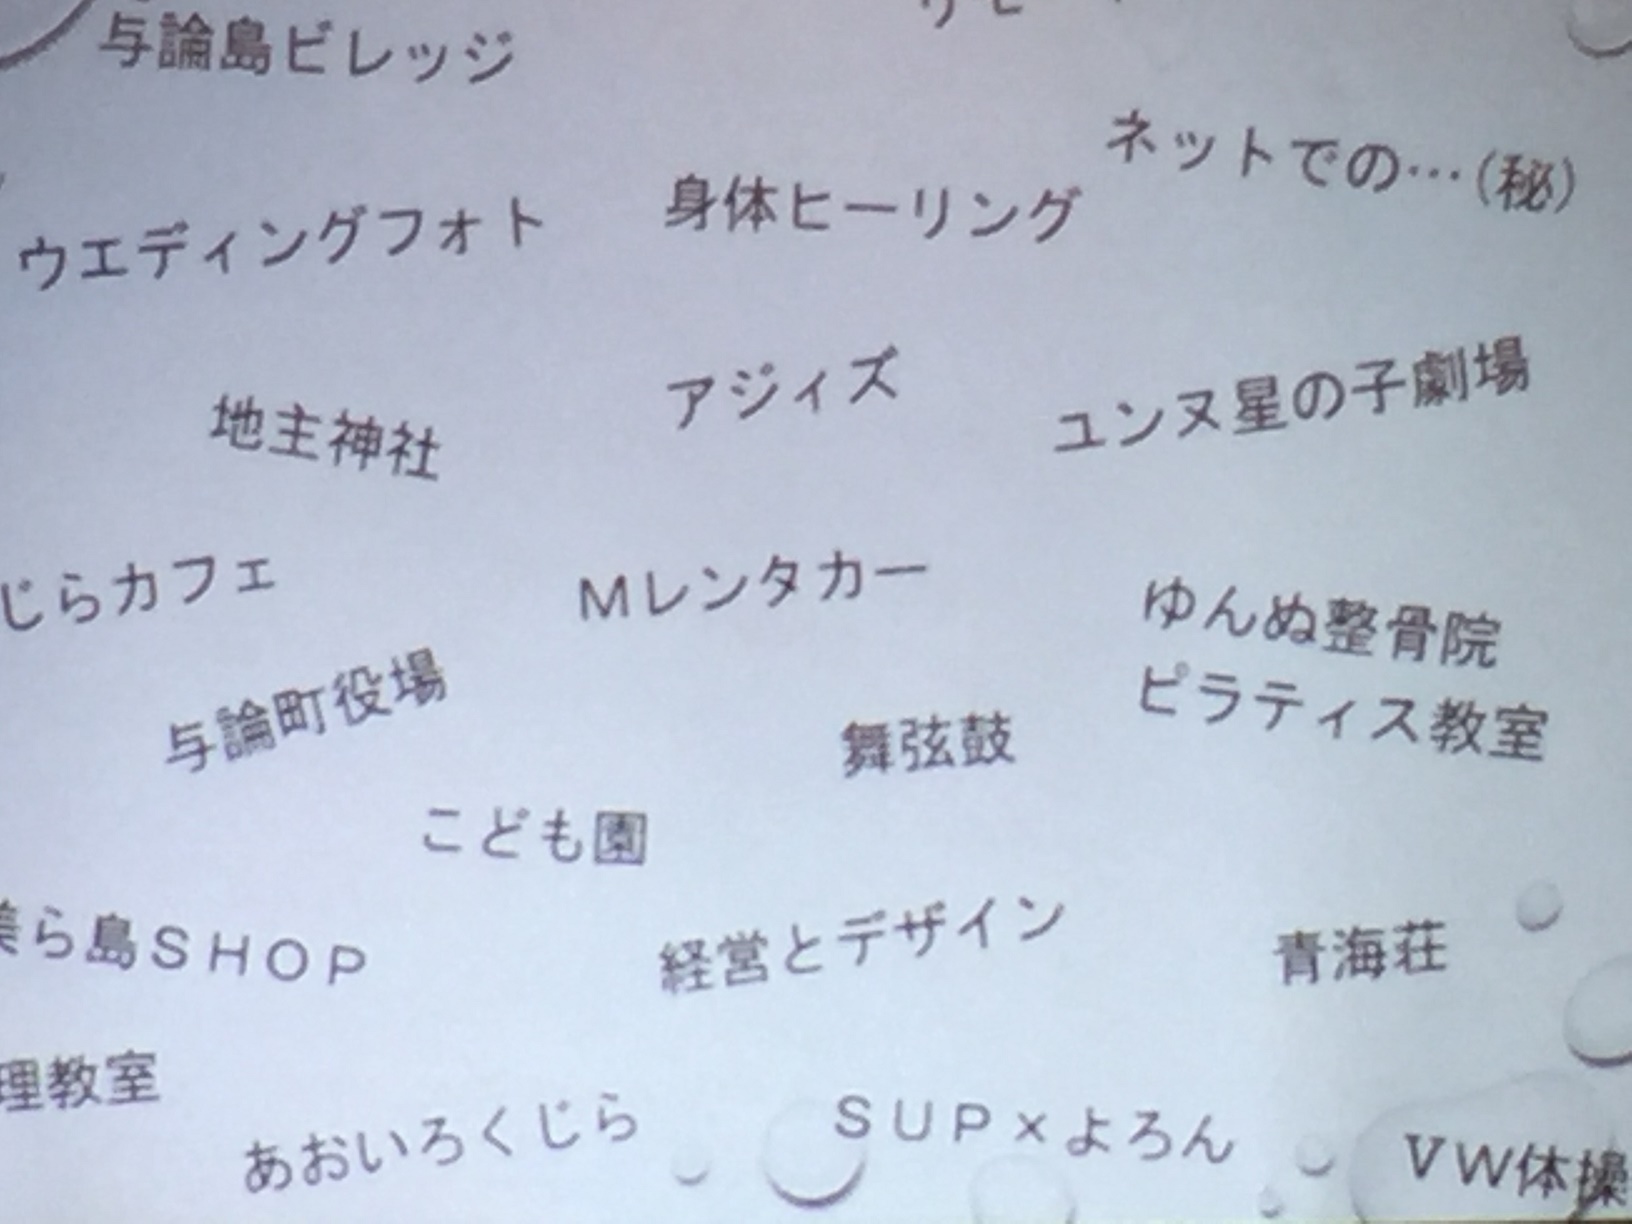 与論島ビレッジ
ネットでの…(秘)
ウエディングフォト
身体ヒーリング
地主神社
アジィズ
ユンヌ星の子劇場
じらカフェ
Mレンタカー
ゆんぬ整骨院
ピラティス教室
与論町役場
舞弦鼓
こども園
美ら島SHOP
経営とデザイン
青海荘
理教室
あおいろくじら
SUP×よろん
VW体操